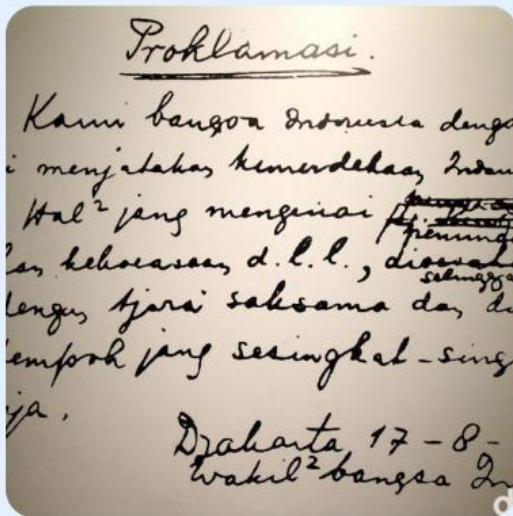 Proklamasi.
Kami bangsa Indonesia denga
i menjatakan kemerdekaan Indon
Hal² jang mengenai
peminda
kan kekoeasaan d.l.l.,
selenggar
dengan tjara saksama dan da
tempoh jang sesingkat-sing
nja.
Djakarta 17 - 8 -
Wakil² bangsa In
d